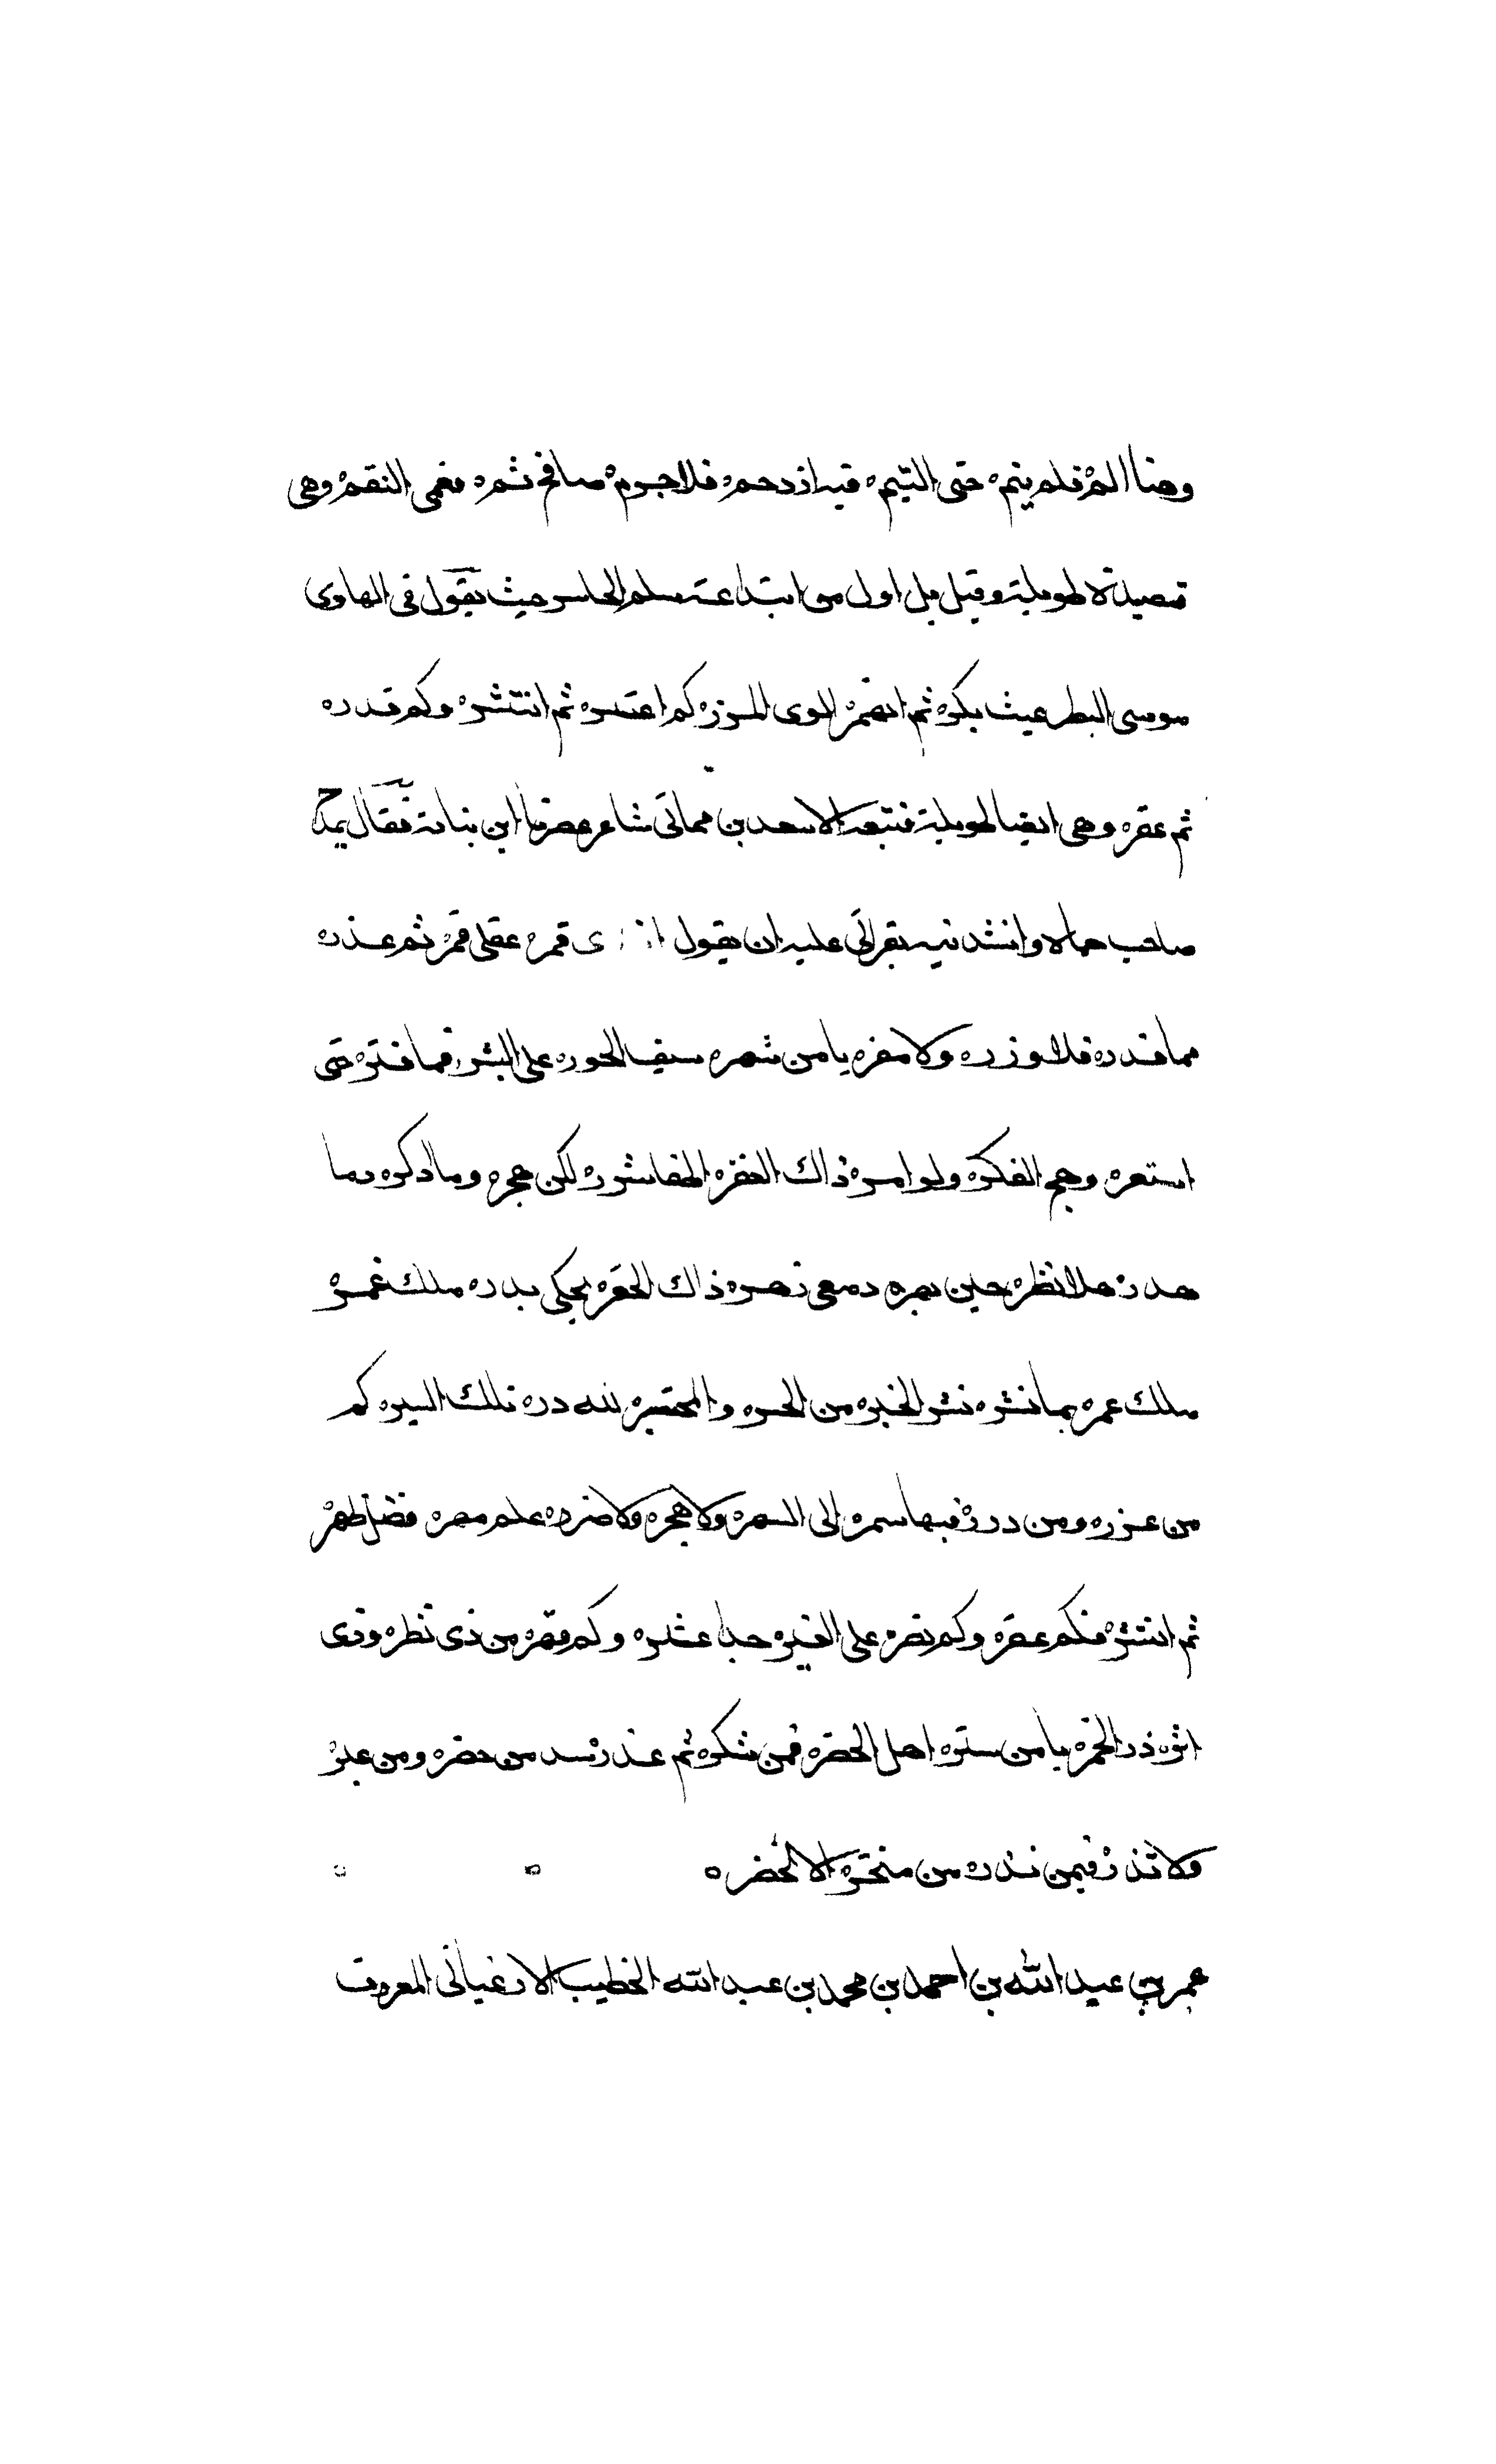 وضا الم فلم ينم ه حتى التيم ه فيه ازدحم ه فلا جرم ه صافح ثم ه فغمى النقم ه وهى
قصيدة طويلة وقيل بل اول من ابتداعه سلم الخاسر حيث يقول فى الهادى
موسى المطر غيث بكر ه ثم انهمر ه الوى المرر ه كم اعتسر ه ثم ايتسر ه وكم قدر ه
ثم غفر ه وهى ايضا طويلة فتبعه الاسعد بن مماتى شاعر عصرنا ابن نباتة فقال يمدح
صاحب حماه وانشدنيه بقراتى عليه ان يقول ى قمر ه عقلى قمر ه ثم عذر ه
مما قدر ه فلا وزر ه ولا مفر ه يا من شهر ه سيف الحور ه على البشر ه فما فتر ه حتى
استعر ه وهج الفكر ه ولو امر ه ذاك الخفر ه الخفا شرر ه لكن هجر ه وما ذكر ه دما
هدر ه هلا نظر ه حين بهر ه دمعى نهر ه ذاك الخفر ه يحكى بدر ه ملك غمر ه
ملك عمر ه بما نشر ه نشر الخبر ه من الحبر ه والمختبر ه لله در ه تلك السير ه كم
من غرر ه ومن درر ه فيها سمر ه الى السهر ه ولا هجر ه ولا ضرر ه علم مهر ه فضل ظهر ه
ثم انتشر ه فكم غفر ه وكم نصر ه على الغير ه جدا عثر ه وكم قهر ه من ذى نظر ه وذى
اثر ه ذر الخمر ه يا من ستر ه اهل الحضر ه فمن شكر ه ثم عذر ه سد من حضر ه ومن عبر ه
ولا تذر ه فيمن نذر ه من منحر ه الا الخضر ه
عمر بن عبد الله بن احمد بن محمد بن عبد الله الخطيب الارغيانى المعروف